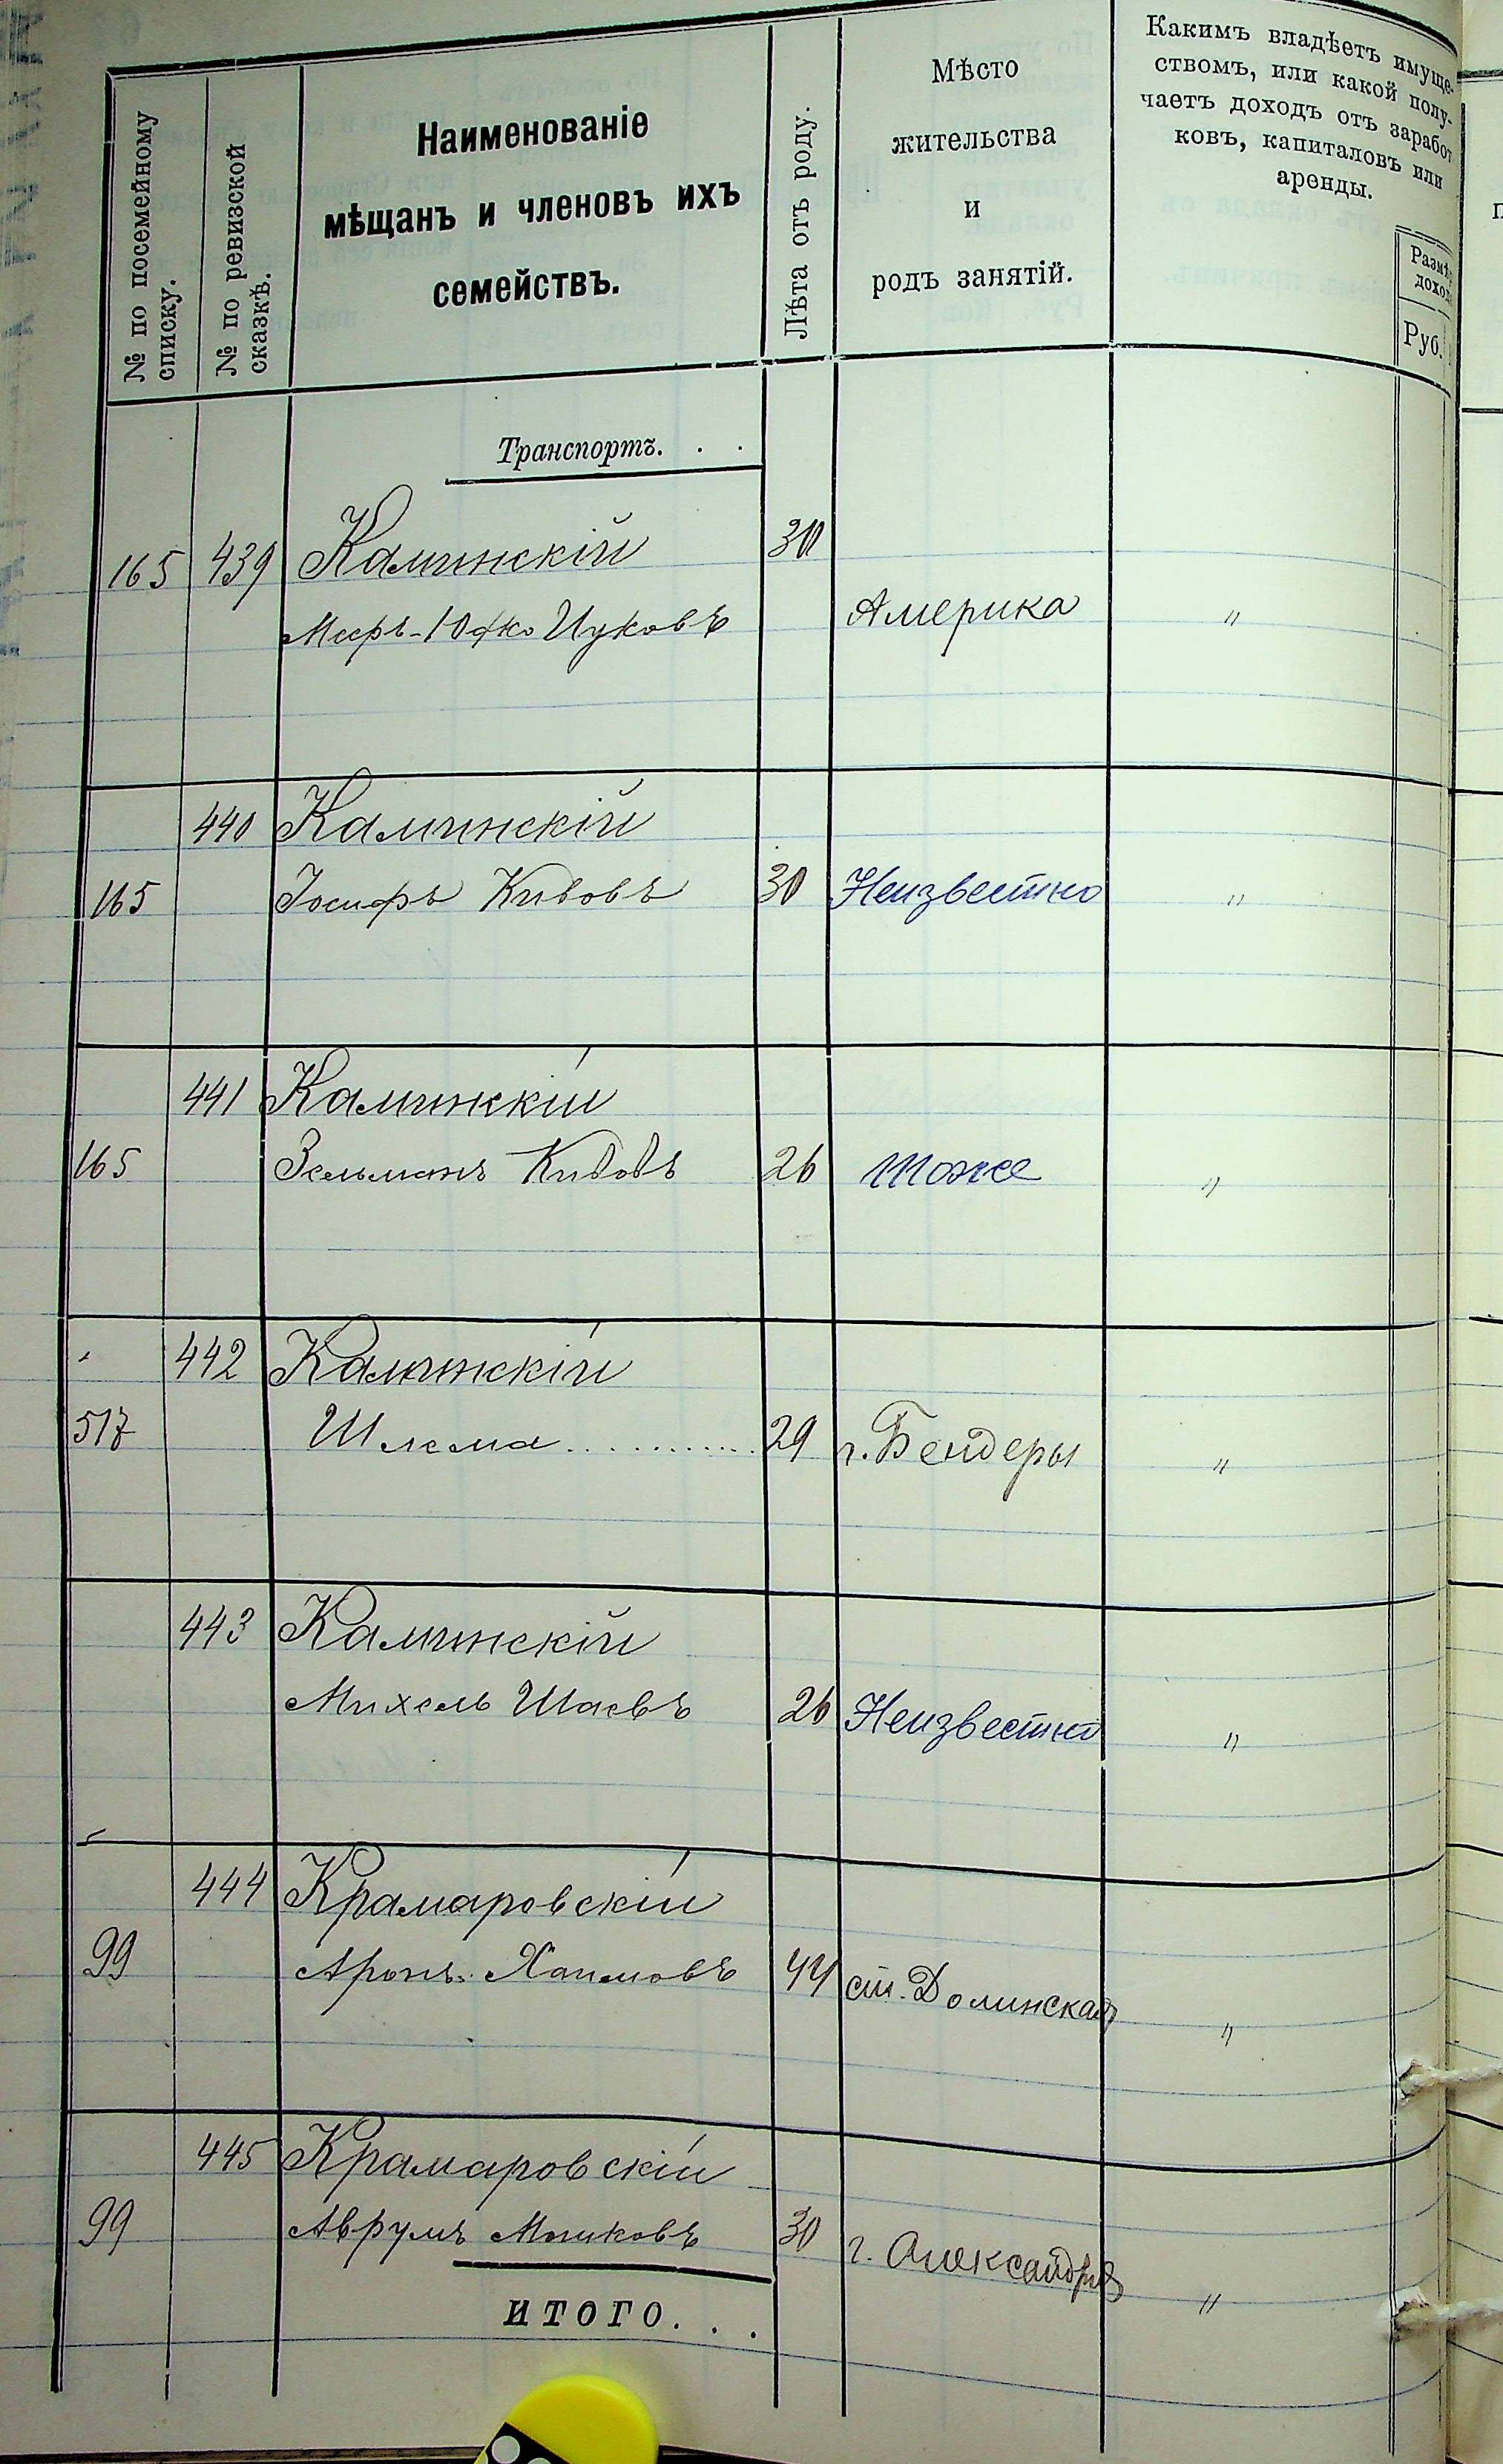 № по посемейному
списку.
№ по ревизской
сказкѣ.
Наименованіе
мѣщанъ и членовъ ихъ
семействъ.
Лѣта отъ роду.
Мѣсто
жительства
и
родъ занятій.
Какимъ владѣетъ имуще-
ствомъ, или какой полу-
чаетъ доходъ отъ заработ
ковъ, капиталовъ или
аренды.
Руб.
Транспортъ. . .
165 439 Калинскій 30
Америка "
440 Калинскій
165 Іосифъ Кивовъ 30 Неизвестно "
441 Калинскій
165 Зельманъ Кивовъ 26 тоже "
442 Калинскій
517 Шлема 29 г. Бендеры "
443 Калинскій
Михель Шаевъ 26 Неизвестно "
444 Крамаровскій
99 Аронъ Хаимовъ 44 ст. Долинская "
445 Крамаровскій
99 Аврумъ Мошковъ 30 г. Александрія "
ИТОГО. . .